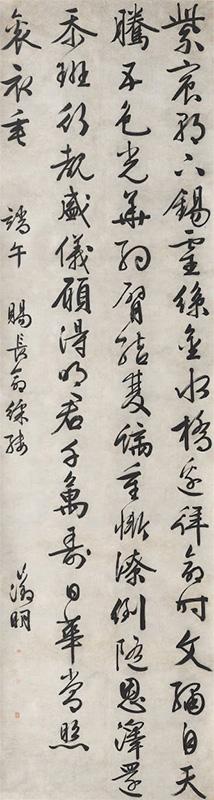 紫宸朝下錫靈絲金水橋邊拜命時文繡自天
騰五色光華約臂結雙螭重慚潦倒隨恩澤還
忝班行覩盛儀願得明君千萬壽日華常照
袞衣垂 端午 賜長命綵縷 徵明